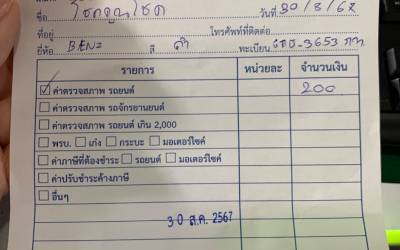 ชื่อ โชคคูณโชค วันที่ 30/8/67
ที่อยู่ โทรศัพท์ที่ติดต่อ
ยี่ห้อ BENZ สี ดำ ทะเบียน 3653 กท
รายการ หน่วยละ จำนวนเงิน
☑ ค่าตรวจสภาพ รถยนต์ 200
☐ ค่าตรวจสภาพ รถจักรยานยนต์
☐ ค่าตรวจสภาพ รถยนต์ เกิน 2,000
☐ พรบ. ☐ เก๋ง ☐ กระบะ ☐ มอเตอร์ไซค์
☐ ค่าภาษีที่ต้องชำระ ☐ รถยนต์ ☐ มอเตอร์ไซค์
☐ ค่าปรับชำระล้างภาษี
☐ อื่นๆ
30 ส.ค. 2567